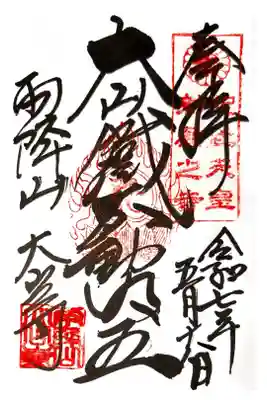 奉拝
令和七年
五月十六日
大山鐵不動明王
雨降山 大山寺